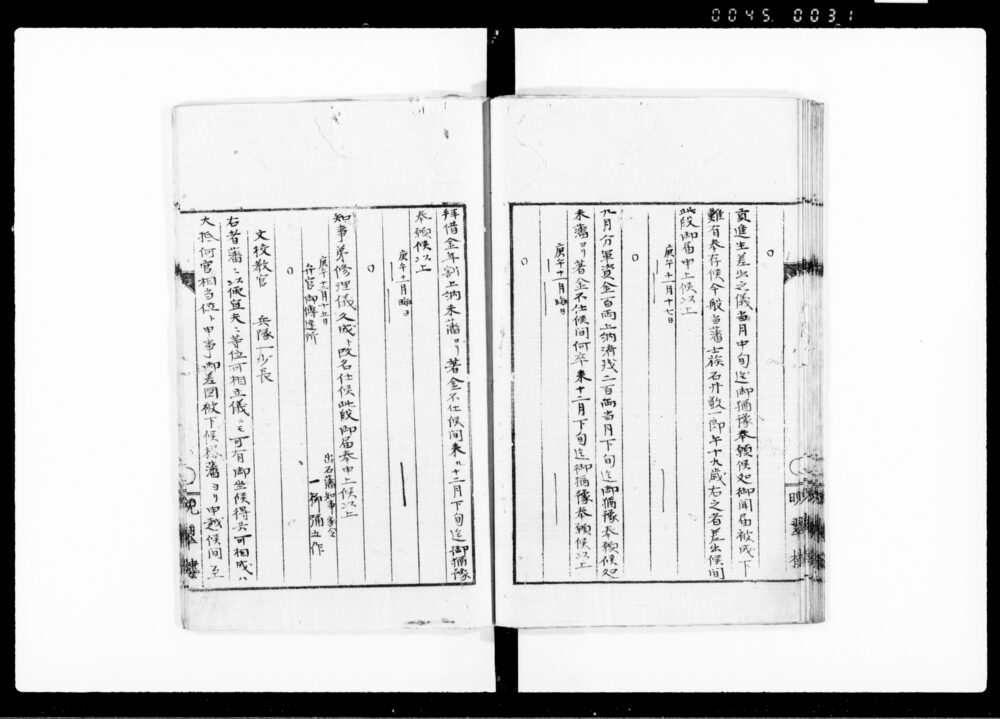 0045. 0031
○
貢進生差出之儀当月中旬迄御猶豫奉願候処御聞届被成下
難有奉存候今般当藩士族石井敬一郎午十九歳右之者差出候間
此段御届申上候以上
庚午十一月十七日
○
九月分軍資金百両上納済残二百両当月下旬迄御猶豫奉願候処
未藩ヨリ著金不仕候間何卒来十二月下旬迄御猶豫奉願候以上
庚午十一月晦日
○
拝借金年割上納未藩ヨリ著金不仕候間来ル十二月下旬迄御猶豫
奉願候以上
庚午十一月晦日
○
知事弟修理儀久成ト改名仕候此段御届奉申上候以上
庚午十二月十五日
出石藩知事家令
一柳彌五作
弁官御傳達所
○
文校教官 兵隊ノ少長
右者藩ニ以便宜夫ニ等位可相立儀ニモ可有御坐候得共可相成ハ
大抵何官相当位ト申事御差図被下候様藩ヨリ申越候間至
翠樓